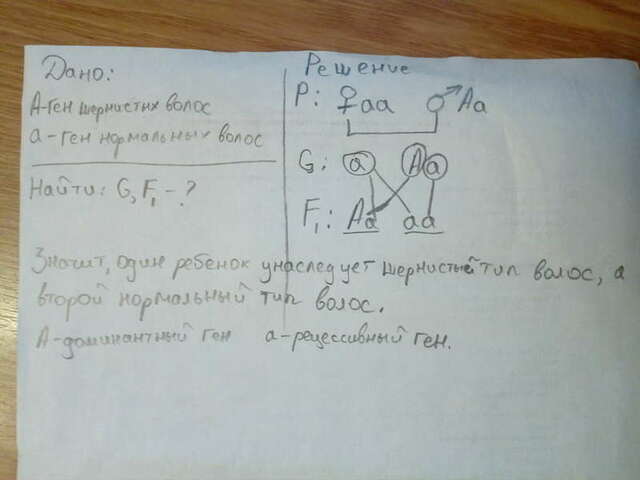 Дано:
А-ген шернистих волос
а-ген нормальных волос
Найти: G, F₁ - ?
Решение
P: ♀aa ♂Aa
G: a A a
F₁: Aa aa
Значит, один ребенок унаследует шернистый тип волос, а
второй нормальный тип волос.
А-доминантный ген а-рецессивный ген.